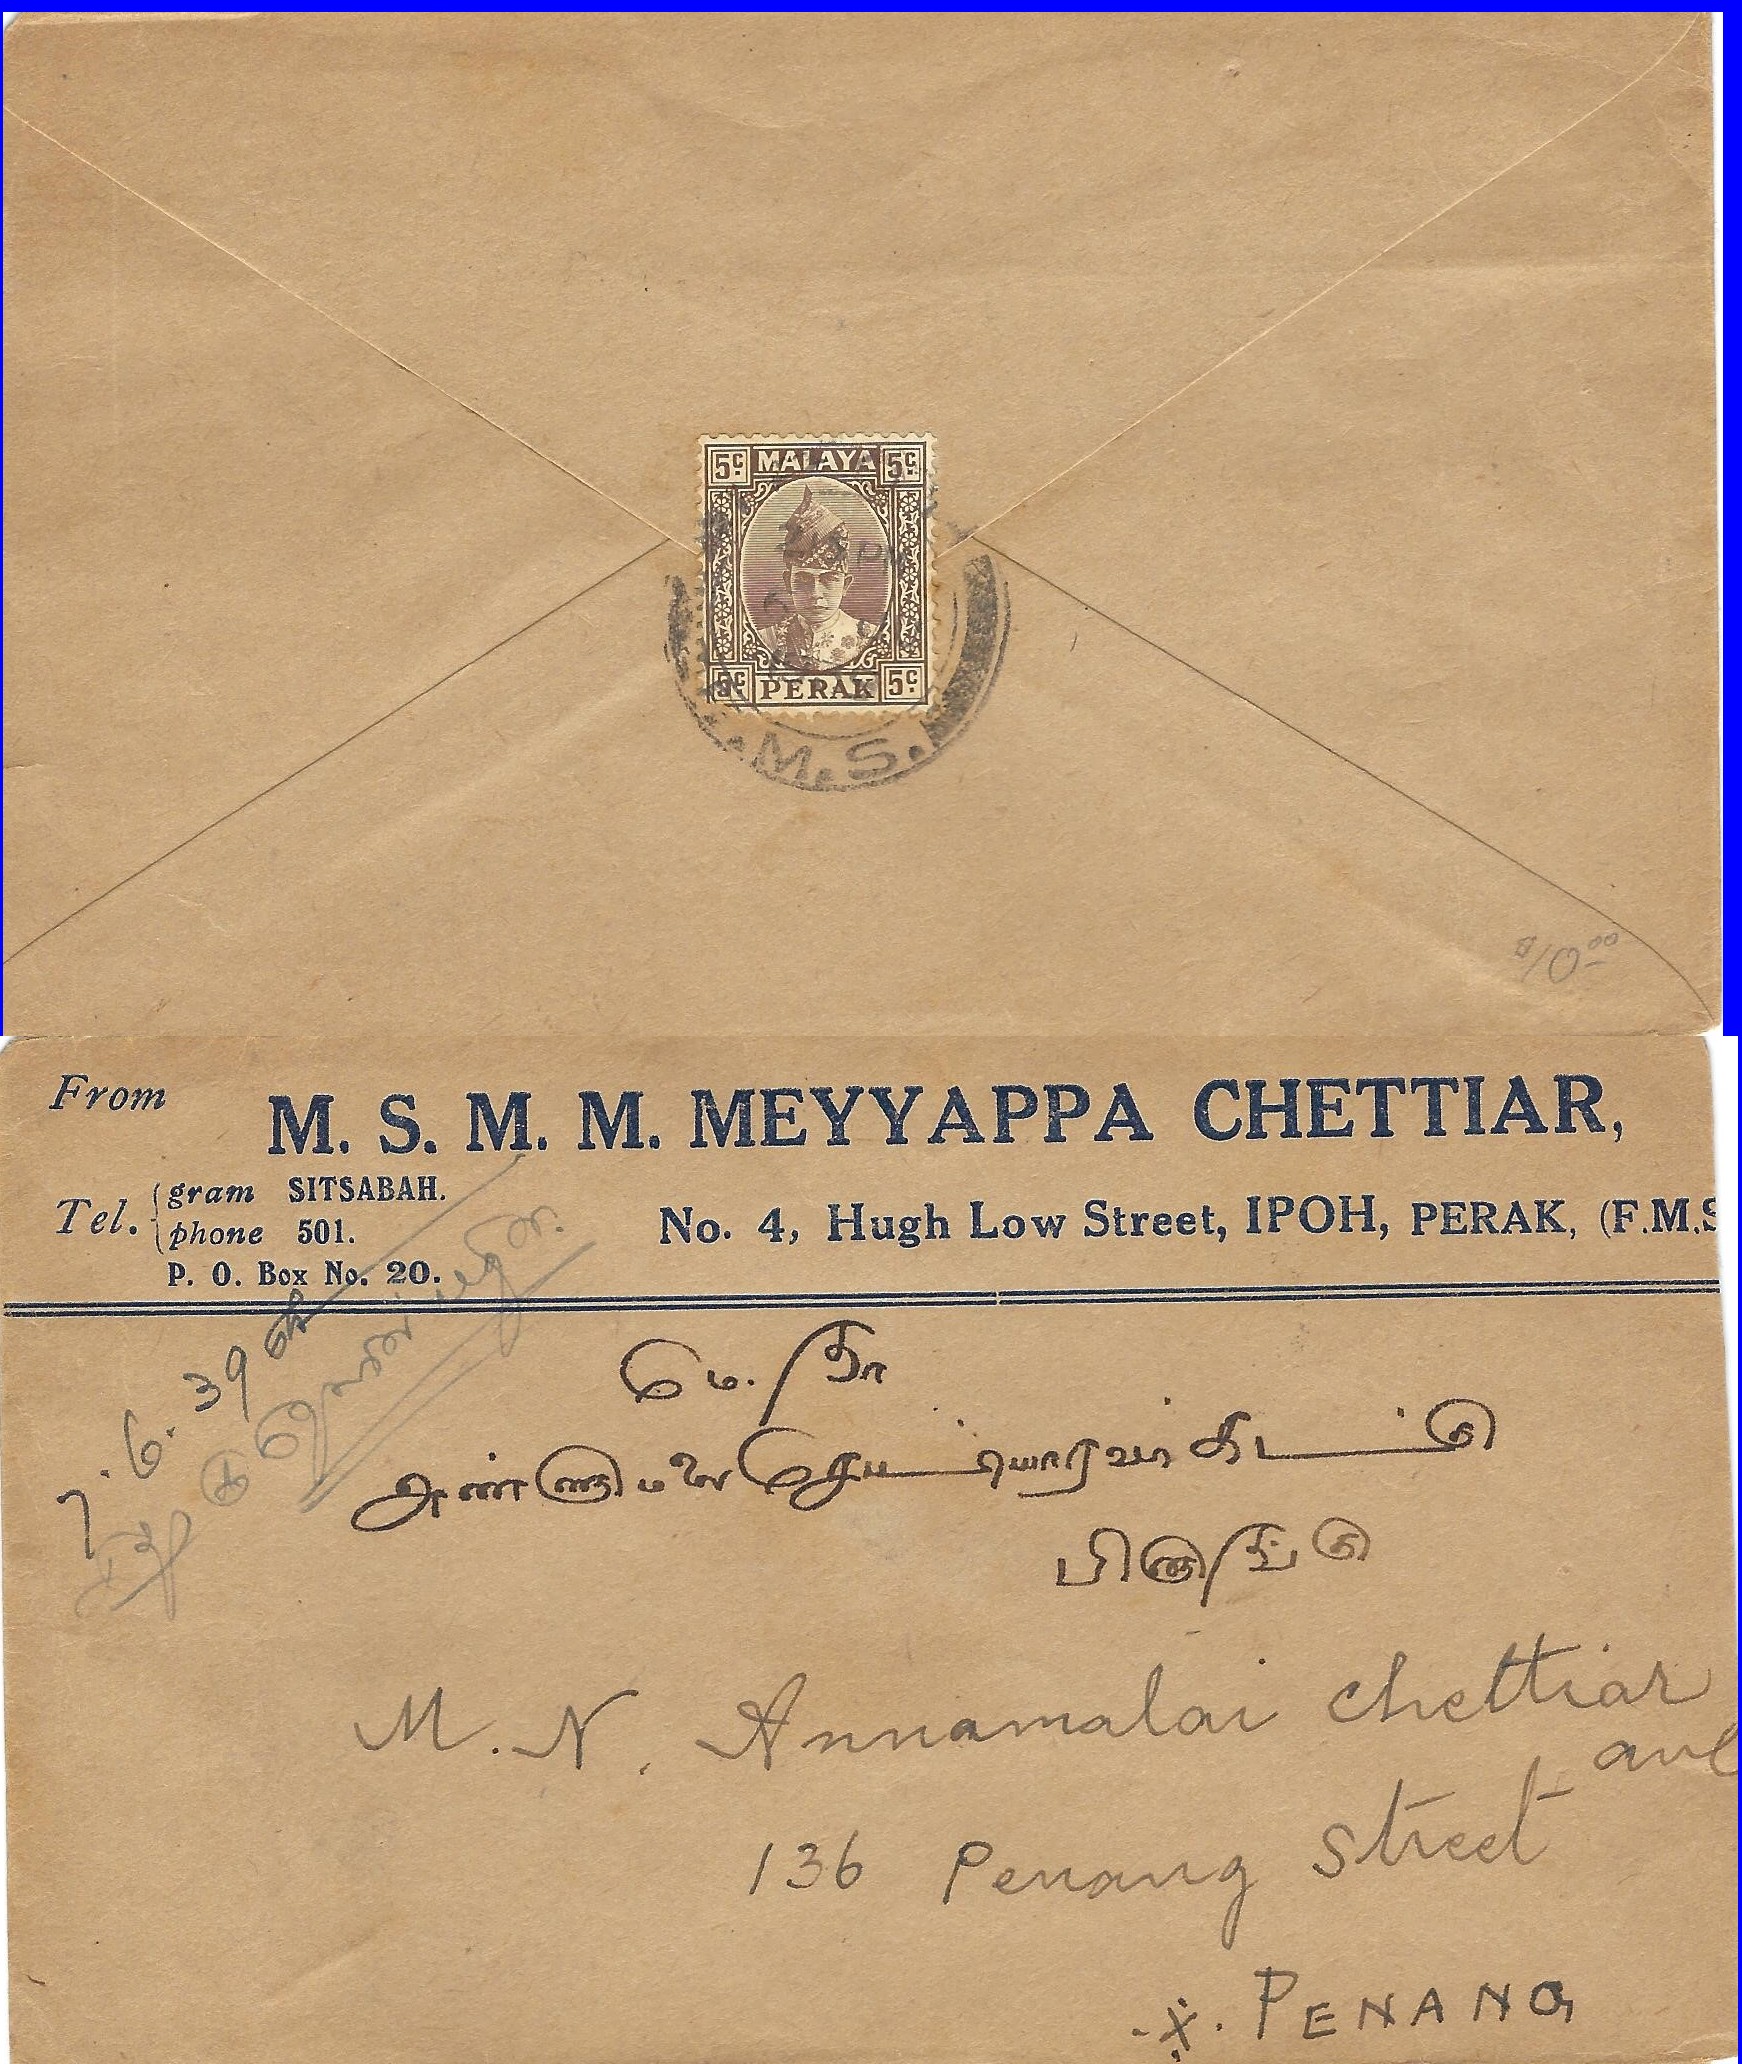 5c MALAYA 5c
5c PERAK 5c
.M.S.
From
M. S. M. M. MEYYAPPA CHETTIAR,
Tel. gram SITSABAH.
phone 501.
P. O. Box No. 20.
No. 4, Hugh Low Street, IPOH, PERAK, (F.M.S
7.6.39
மெ. நா
பினாங்கு
M. N. Annamalai Chettiar
136 Penang Street
PENANG